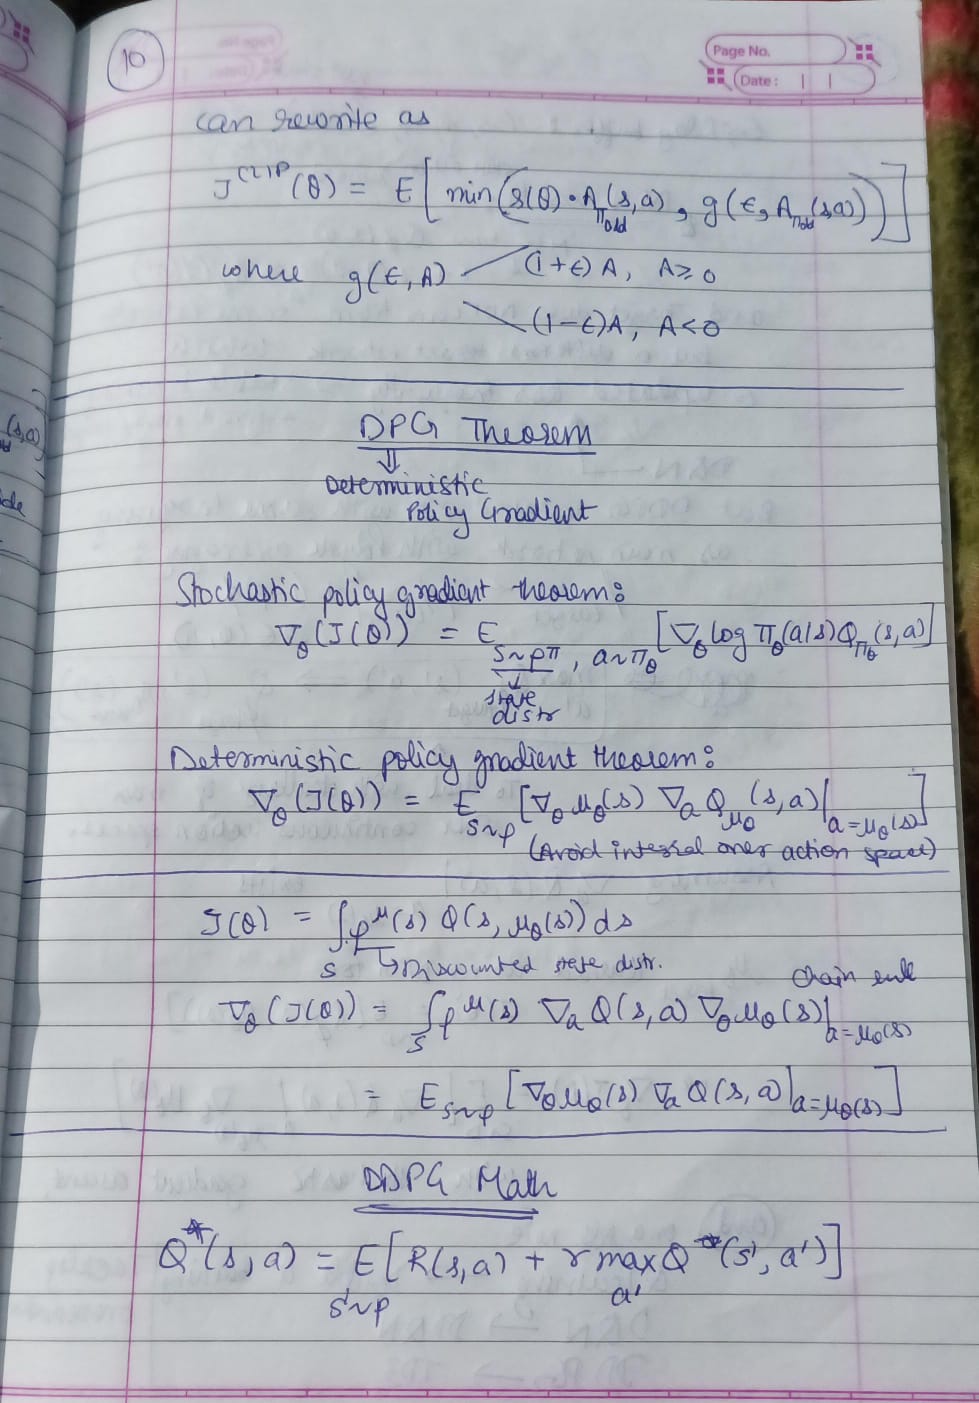 10
Page No.
Date :
can rewrite as
J^CLIP(θ) = E[min(r(θ)·A_πold(s,a), g(ϵ, A_πold(s,a)))]
where g(ϵ,A) (1+ϵ)A, A≥0
(1-ϵ)A, A<0
DPG Theorem
⇓
Deterministic
Policy Gradient
Stochastic policy gradient theorem:
∇_θ(J(θ)) = E_{s~ρπ, a~π_θ} [∇_θ log π_θ(a|s) Q_{π_θ}(s,a)]
↓
state
distr
Deterministic policy gradient theorem:
∇_θ(J(θ)) = E_{s~ρ} [∇_θ μ_θ(s) ∇_a Q_{μ_θ}(s,a)|_{a=μ_θ(s)}]
(Avoid integral over action space)
J(θ) = ∫_S ρ^μ(s) Q(s, μ_θ(s)) ds
↳ Discounted state distr.
chain rule
∇_θ(J(θ)) = ∫_S ρ^μ(s) ∇_a Q(s,a) ∇_θ μ_θ(s)|_{a=μ_θ(s)}
= E_{s~ρ} [∇_θ μ_θ(s) ∇_a Q(s,a)|_{a=μ_θ(s)}]
DDPG Math
Q^*(s,a) = E_{s'~p} [R(s,a) + γ max_{a'} Q^*(s',a')]